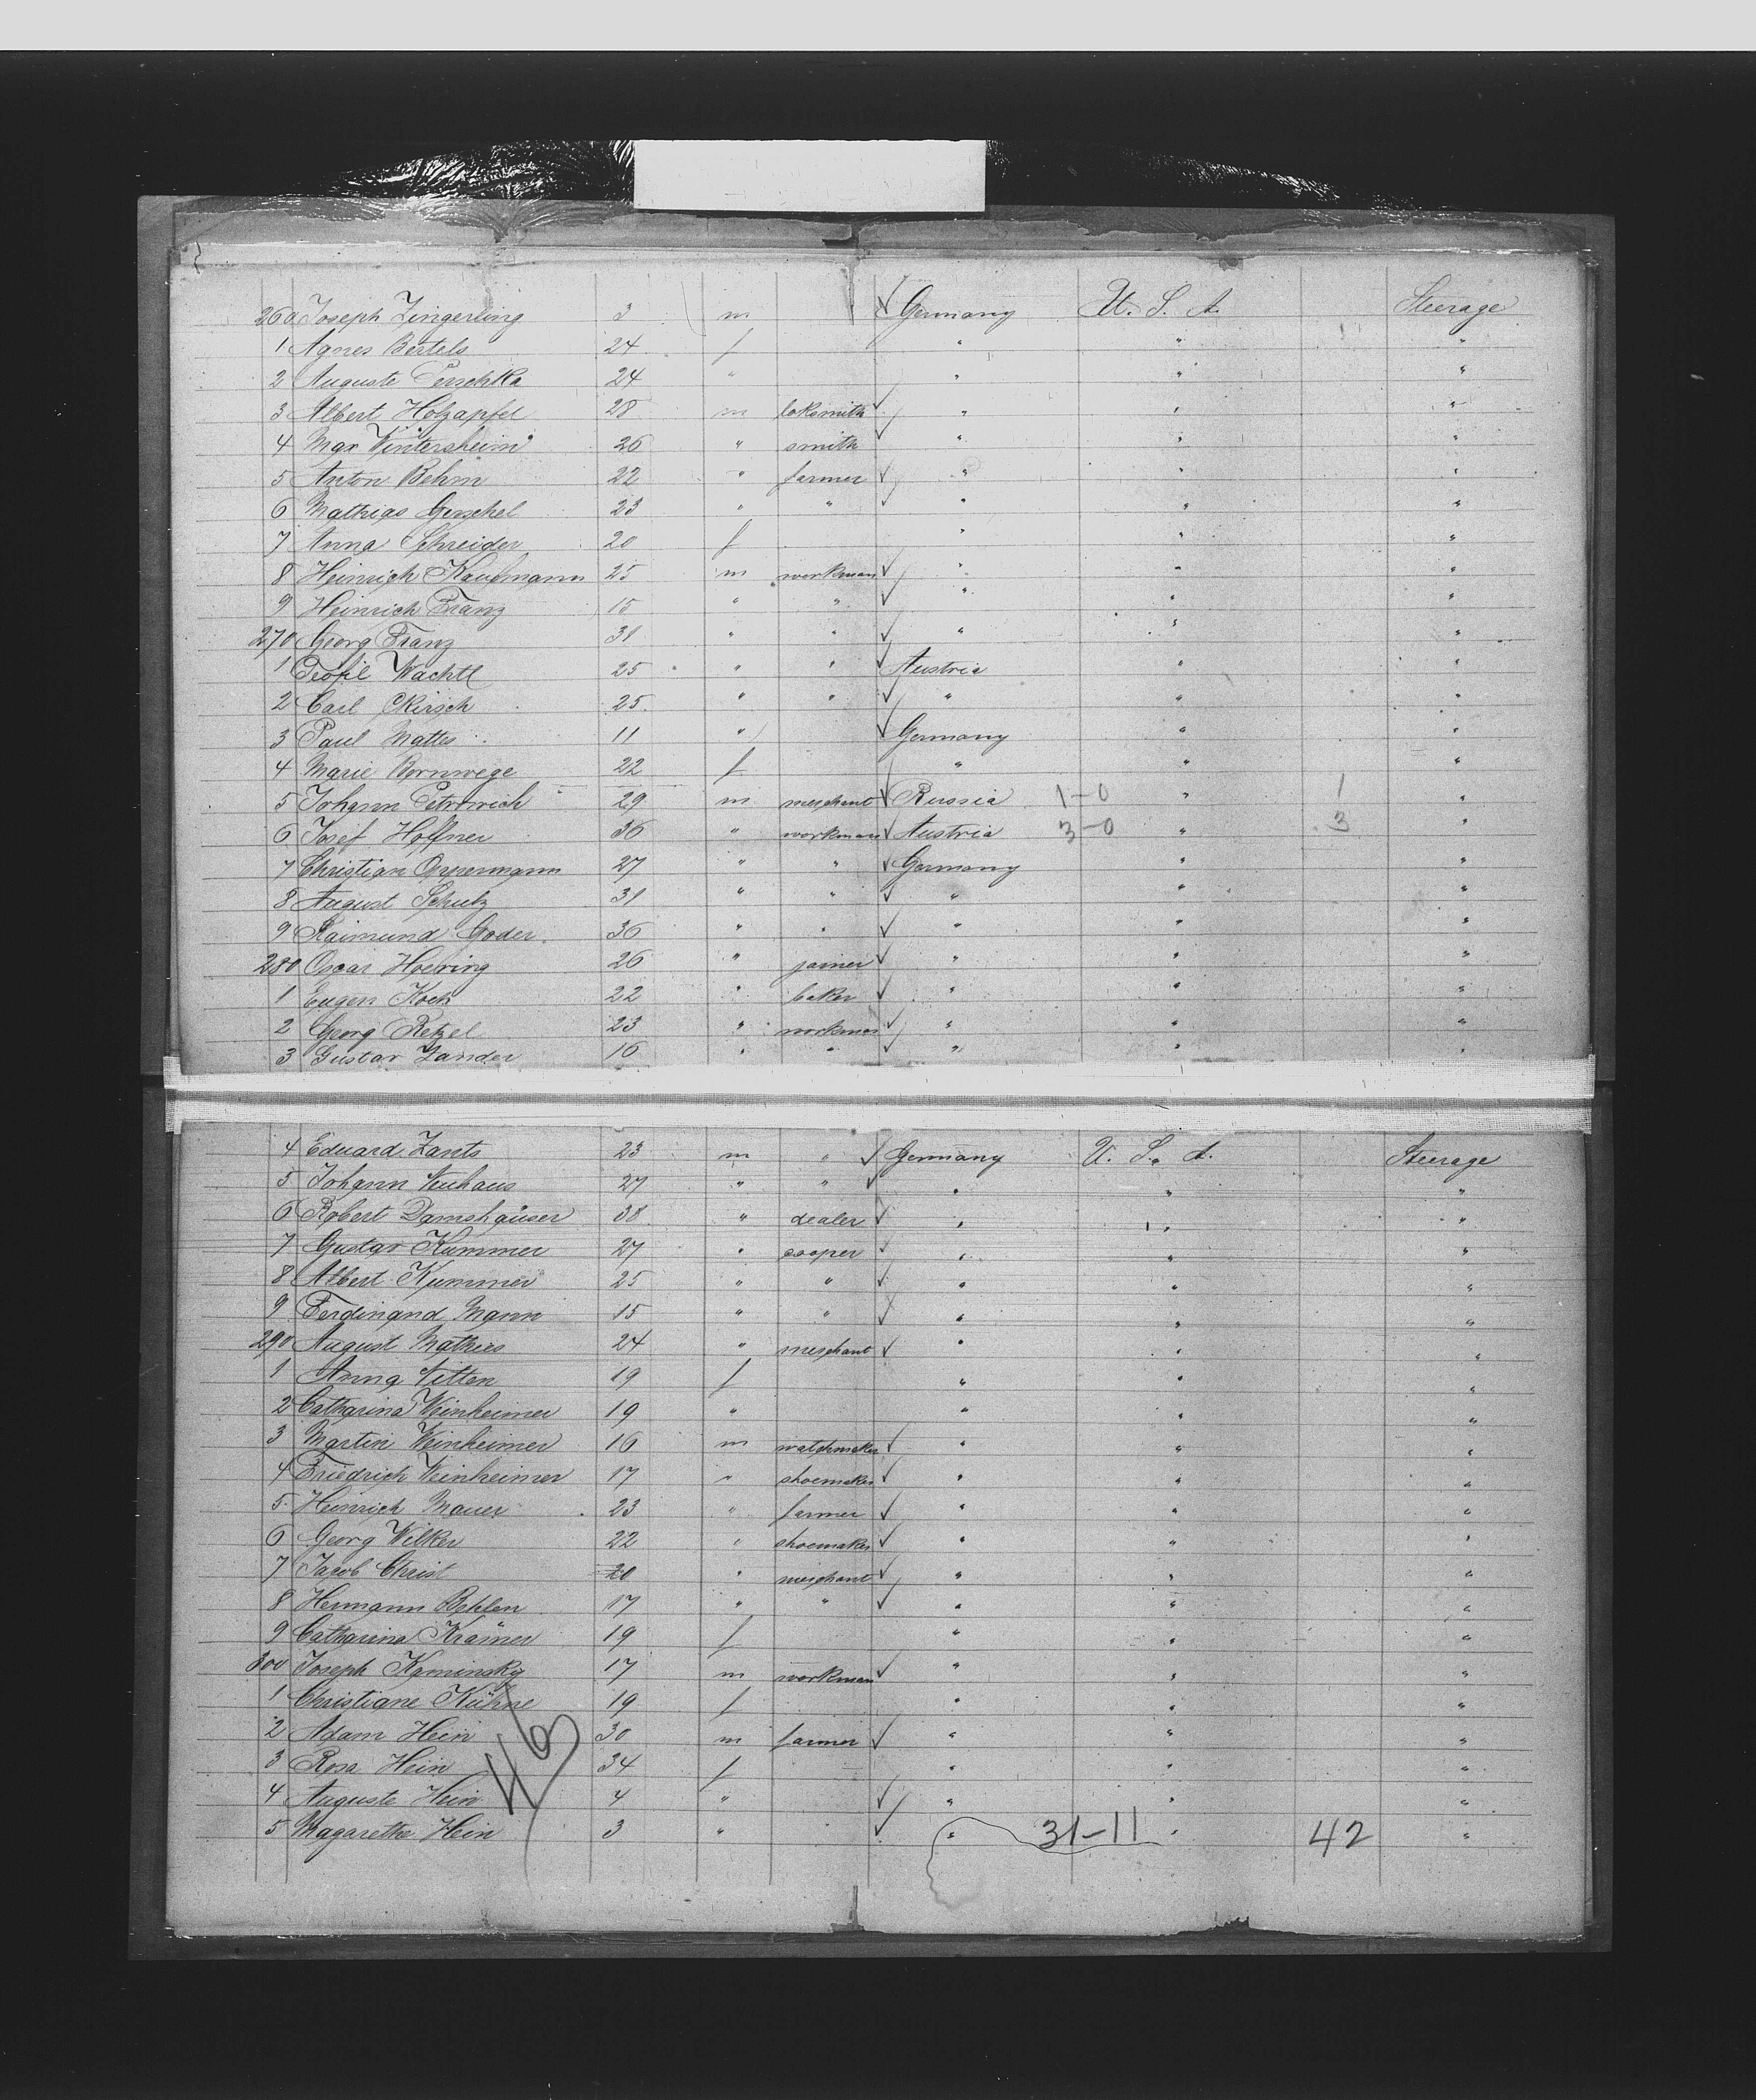 260 Joseph Zingerling 3 m Germany U. S. A. Steerage
1 Agnes Bertels 24 f " " "
2 Auguste Perschka 24 " " " "
3 Albert Holzapfel 28 m loksmith " " "
4 Max Wintersheim 26 " smith " " "
5 Anton Behm 22 " farmer " " "
6 Mathias Gerschel 23 " " " " "
7 Anna Schreider 20 f " " "
8 Heinrich Kaufmann 25 m workman " " "
9 Heinrich Franz 15 " " " " "
270 Georg Franz 31 " " " " "
1 Teofil Wachtl 25 " " Austria " "
2 Carl 25 " " " " "
3 Paul Mattes 11 " Germany " "
4 Marie Bornwege 22 f " " "
5 Johann Petrowich 29 m merchant Russia 1-0 " 1 "
6 Josef Hoffner 36 " workman Austria 3-0 " 3 "
7 Christian Oppermann 27 " " Germany " "
8 August Schulz 31 " " " " "
9 Raimund Goder 36 " " " " "
280 Oscar Hoering 26 " joiner " " "
1 Eugen Koch 22 " baker " " "
2 Georg Retzel 23 " workman " " "
3 Gustav Zander 16 " " " " "
4 Eduard Zants 23 m " Germany U. S. A. Steerage
5 Johann Neuhaus 27 " " " " "
6 Robert Damshäuser 38 " dealer " " "
7 Gustav Kummer 27 " cooper " " "
8 Albert Kummer 25 " " " " "
9 Ferdinand Mann 15 " " " " "
290 August Mathies 24 " merchant " " "
1 Anna Vitten 19 f " " "
2 Catharina Weinheimer 19 " " " "
3 Martin Weinheimer 16 m watchmaker " " "
4 Friedrich Weinheimer 17 " shoemaker " " "
5 Heinrich Mauer 23 " farmer " " "
6 Georg Wilker 22 " shoemaker " " "
7 Jacob Christ 20 " merchant " " "
8 Hermann Behlen 17 " " " " "
9 Catharina Krämer 19 f " " "
300 Joseph Kaminsky 17 m workman " " "
1 Christiane Kühne 19 f " " "
2 Adam Hein 30 m farmer " " "
3 Rosa Hein 34 f " " "
4 Auguste Hein 4 " " " "
5 Magarethe Hein 3 " " 31-11 " 42 "
46